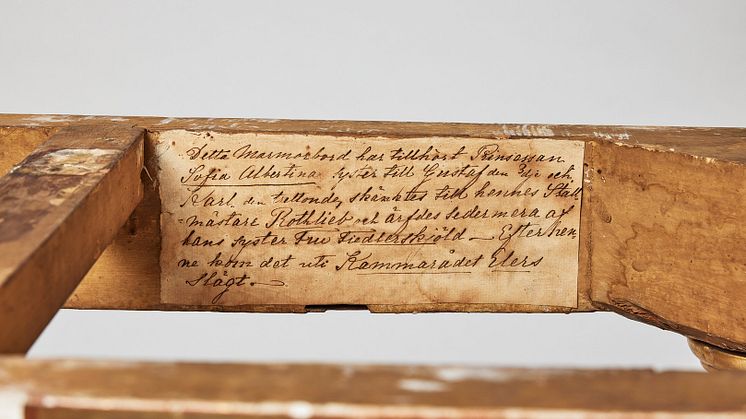 Detta Marmorbord har tillhört Prinsessan
Sofia Albertina syster till Gustaf den 3dje och
Karl den trettonde, skänktes till hennes Stall-
mästare Rothlieb och ärfdes sedermera af
hans syster Fru Fiedlersköld — Efter hen-
ne kom det uti Kammarådet Elers
Slägt.—